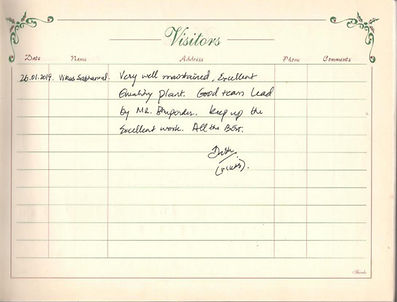 Visitors
Date Name Address Phone Comments
26.01.2019. Vikas Sabharwal. Very well maintained, Excellent
Quality plant. Good team Lead
by Mr. Keep up the
Excellent work. All the Best.